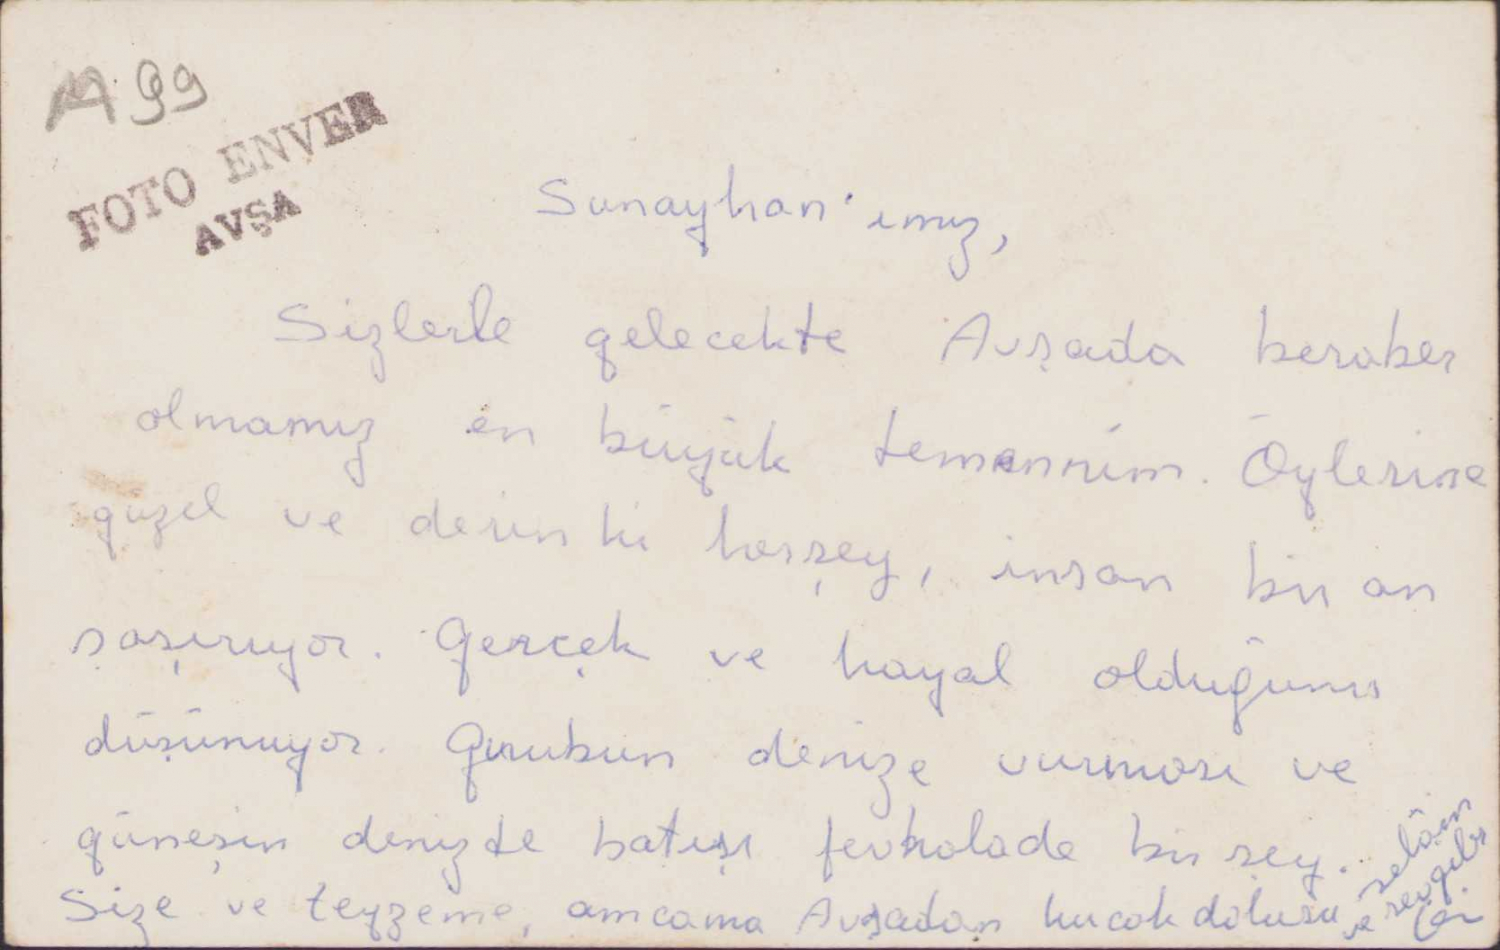 M 99
FOTO ENVER
AVŞA
Sunayhan'ımız,
Sizlerle gelecekte Avşada beraber
olmamız en büyük temennim. Öylerine
güzel ve derin ki herşey, insan bir an
şaşırıyor. Gerçek ve hayal olduğunu
düşünüyor. Gurubun denize vurması ve
güneşin denizde batışı fevkalade bir şey.
Size ve teyzeme, amcama Avşadan kucak dolusu
selâm
ve sevgiler